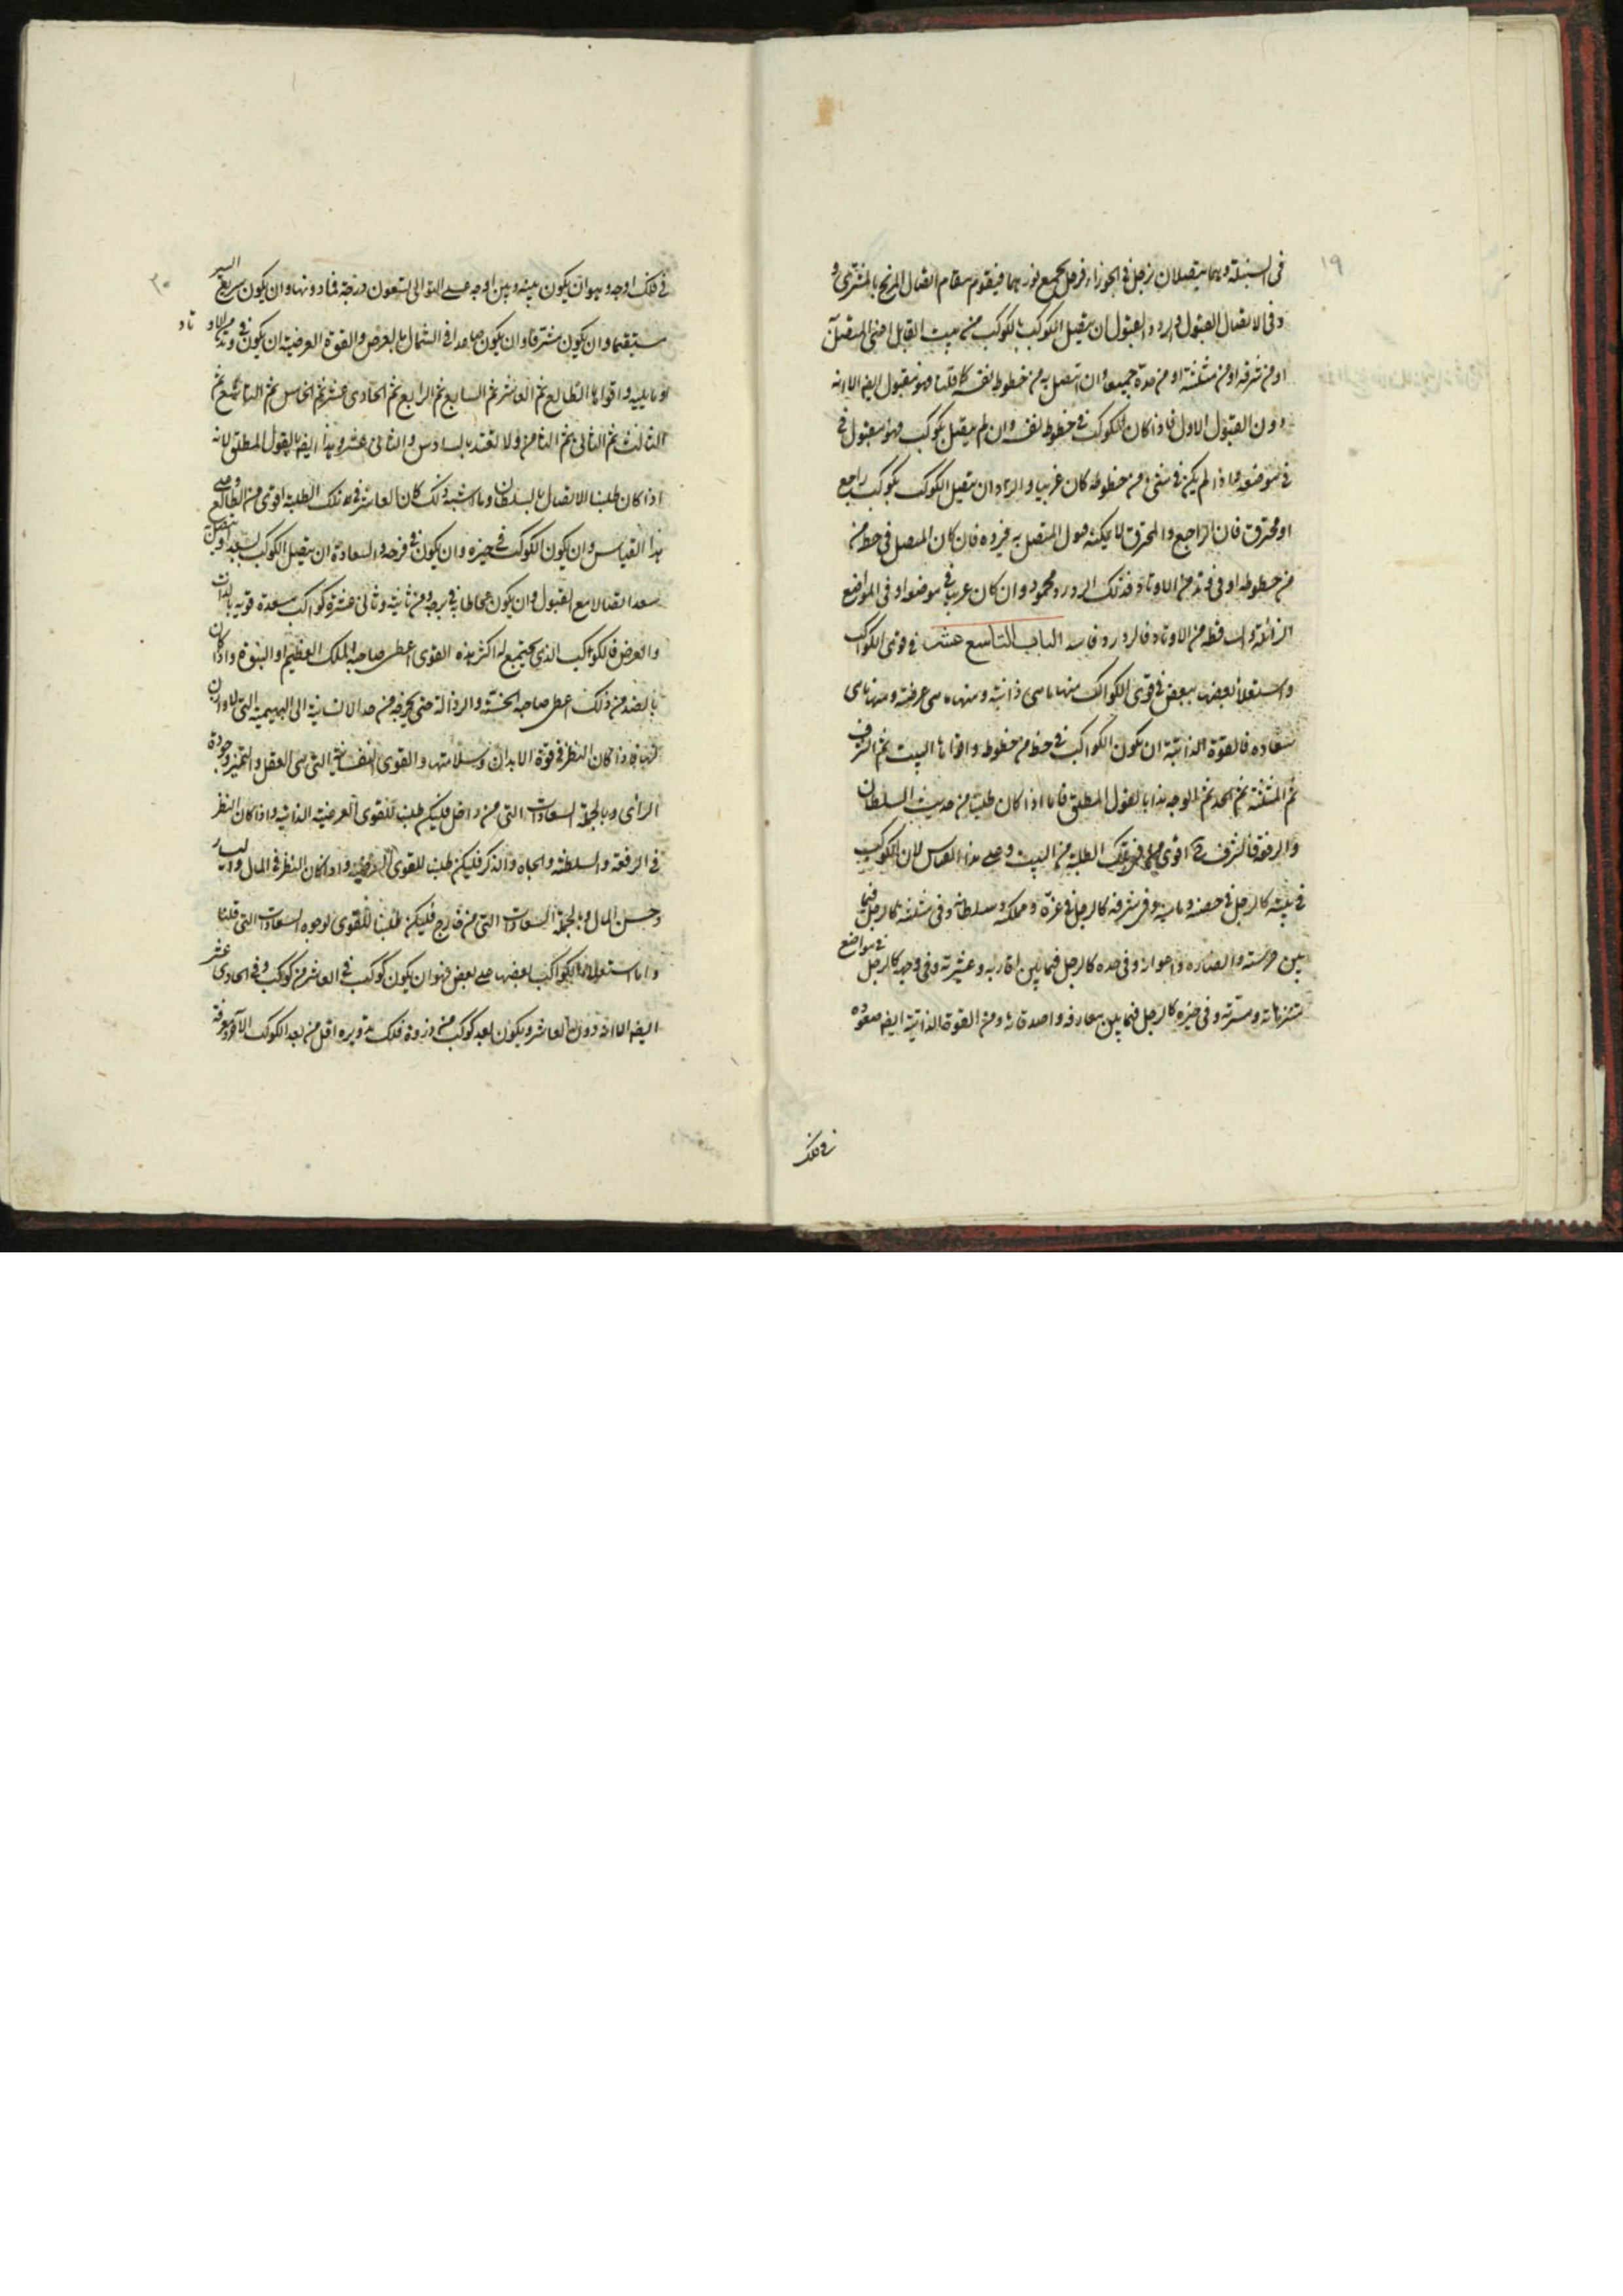 ١٩
في السنبلة وهما يتصلان بزحل في الجوزاء فزحل يجمع نورهما فيقوم مقام اتصال المريخ بالمشترى و
وفي الاتصال القبول والرد والقبول ان يتصل الكوكب بالكوكب من بيت القابل اعنى المتصل
او من شرفه او من مثلثته او من حده جميعا وان اتصل به من حظوظ نفسه كما قلنا فهو مقبول ايضا الا انه
دون القبول الاول فاذا كان الكوكب في حظوظ نفسه وان لم يتصل بكوكب فهو مقبول في
في موضعه واذا لم يكن في شئ من حظوظه كان غريبا والرد ان يتصل الكوكب بكوكب راجع
او محترق فان الراجع والمحترق لا يمكنه قبول المتصل به فيرده فان كان المتصل في حظ من
من حظوظه او في وتد من الاوتاد فذلك الرد رد محمود وان كان غريبا في موضعه او في المواضع
الزائلة والساقطة من الاوتاد فالرد رد فاسد الباب التاسع عشر في قوى الكواكب
واستعلا بعضها ببعض في قوى الكواكب منها ما هى ذاتية ومنها ما هى عرضية ومنها ما هى
سعاده فالقوة الذاتية ان يكون الكواكب في حظ من حظوظه واقواها البيت ثم الشرف
ثم المثلثة ثم الحد ثم الوجه هذا بالقول المطلق فاما اذا كان طلبنا من حديث السلطان
والرفعة فالشرف اقوى في تلك الطلبة من البيت وعلى هذا القياس لان الكوكب
في بيته كالرجل في حصنه وفي شرفه كالرجل في عزه ومملكه وسلطانه وفي مثلثه كالرجل فيما
بين حرسته وانصاره واعوانه وفي حده كالرجل فيما بين اقاربه وعشيرته وفي وجهه كالرجل في مواضع
متنزهاته ومسرته وفي حيزه كالرجل فيما بين معارفه واصدقائه ومن القوة الذاتية ايضا صعوده
في فلك
٢٠
في فلك اوجه وهو ان يكون بينه وبين اوجه على التوالى تسعون درجة فما دونها وان يكون سريع السير
مستقيما وان يكون مشرقا وان يكون صاعدا في الشمال بالعرض والقوة العرضية ان يكون في وتد من الاوتاد
او ما يليه واقواها الطالع ثم العاشر ثم السابع ثم الرابع ثم الحادى عشر ثم الخامس ثم التاسع ثم
الثالث ثم الثانى ثم الثامن ولا تعتد بالسادس والثانى عشر وهذا ايضا بالقول المطلق لانه
اذا كان طلبنا الاتصال بالسلطان وما اشبه ذلك كان العاشر في تلك الطلبة اقوى من الطالع وعلى
هذا القياس وان يكون الكوكب في حيزه وان يكون في فرحه والسعادة ان يتصل الكوكب بسعد او يتصل به
سعد اتصالا مع القبول وان يكون محاطا به في برجه ومن ثانيه وثانى عشره كواكب مسعدة قوية بالذات
والعرض فالكوكب الذى يجتمع له اكثر هذه القوى اعطى صاحبه الملك العظيم او النبوة واذا كان
بالضد من ذلك اعطى صاحبه الخسة والرذالة حتى يخرجه من حد الانسانية الى البهيمية
فاذا كان النظر في قوة الابدان وسلامتها والقوى النفسانية التى هى العقل والتميز وجودة
الراى وبالجملة السعادات التى من داخل فليكن طلبنا للقوى الذاتية واذا كان النظر
في الرفعة والسلطنة والجاه والذكر فليكن طلبنا للقوى العرضية واذا كان النظر في المال واليسار
وحسن الحال وبالجملة السعادات التى من خارج فليكن طلبنا للقوى لوجوه السعادات التى قلنا
واما استعلا الكواكب بعضها على بعض فهو ان يكون كوكب في العاشر من كوكب وفي الحادى عشر
ايضا الا انه دون العاشر ويكون بعد كوكب من ذروة فلك تدويره اقل من بعد الكوكب الآخر ومعرفة